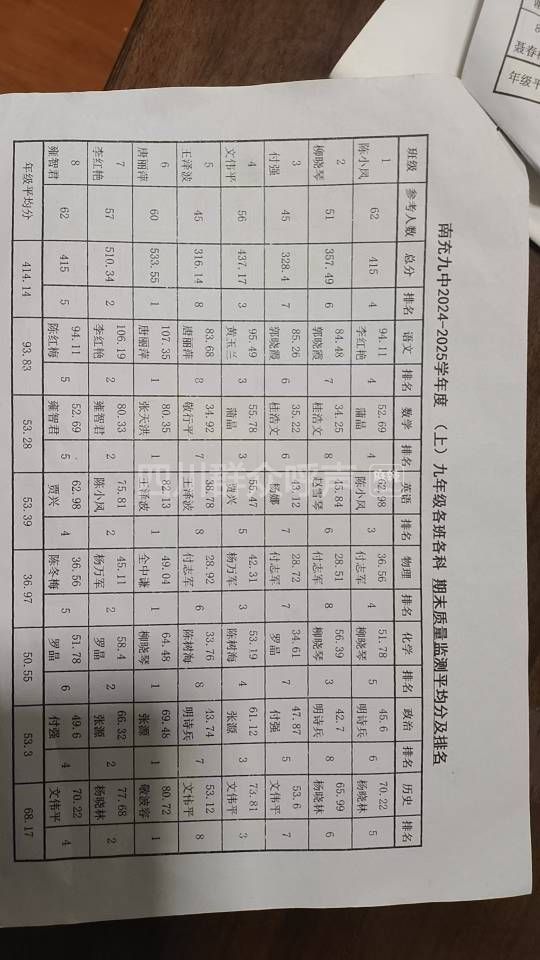 南充九中2024-2025学年度 （上）九年级各班各科 期末质量监测平均分及排名
班级 参考人数 总分 排名 语文 排名 数学 排名 英语 排名 物理 排名 化学 排名 政治 排名 历史 排名
1 62 415 4 94.11 4 52.69 4 62.98 3 36.56 4 51.78 5 45.6 6 70.22 5
陈小凤 李红艳 蒲晶 陈小凤 付志军 柳晓琴 明诗兵 杨晓林
2 51 357.49 6 84.48 7 34.25 8 45.84 6 28.51 8 56.39 3 42.7 8 65.99 6
柳晓琴 郭晓霞 桂浩文 赵雪琴 付志军 柳晓琴 明诗兵 杨晓林
3 45 328.4 7 85.26 6 35.22 6 43.12 7 28.72 7 34.61 7 47.87 5 53.6 7
付强 郭晓霞 桂浩文 杨娜 付志军 罗晶 付强 文伟平
4 56 437.17 3 95.49 3 55.78 3 55.47 42.31 3 53.19 4 61.12 3 73.81 3
文伟平 黄玉兰 蒲晶 贾兴 杨万军 陈树海 张源 文伟平
5 45 316.14 8 83.68 8 34.92 7 36.78 28.92 6 33.76 8 43.74 7 53.12 8
王泽波 唐丽萍 敬行平 王泽波 付志军 陈树海 明诗兵 文伟平
6 60 533.55 1 107.35 1 80.35 1 82.13 1 49.04 1 64.48 1 69.48 1 80.72 1
唐丽萍 唐丽萍 张天洪 王泽波 全中谦 柳晓琴 张源 敬波容
7 57 510.34 2 106.19 2 80.33 2 75.81 2 45.11 2 58.4 2 66.32 2 77.68 2
李红艳 李红艳 雍智君 陈小凤 杨万军 罗晶 张源 杨晓林
8 62 415 5 94.11 5 52.69 5 62.98 4 36.56 5 51.78 6 49.6 4 70.22 4
雍智君 陈红梅 雍智君 贾兴 陈冬梅 罗晶 付强 文伟平
年级平均分 414.14 93.83 53.28 53.39 36.97 50.55 53.3 68.17
聂春
年级平